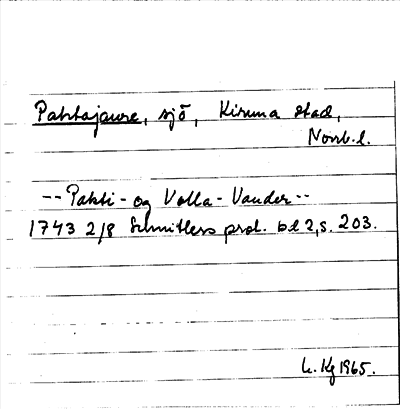 Pahtajaure, sjö, Kiruna stad,
Norrb.l.
-- Pakti- og Volla-Vander --
1743 2/8 Schnitlers prot. bd 2, s. 203.
L. Kg 1965.